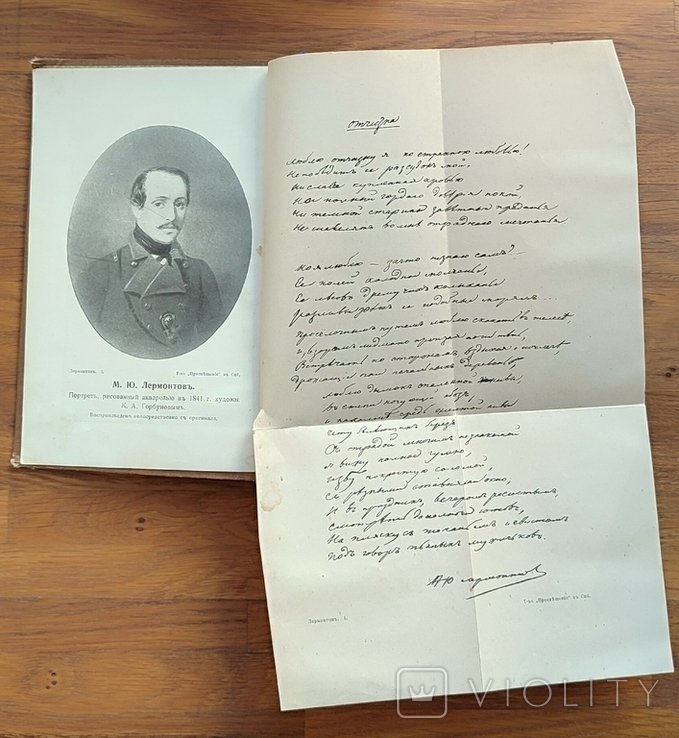 М. Ю. Лермонтовъ.
Портретъ, рисованный акварелью въ 1841 г. художн.
К. А. Горбуновымъ.
Воспроизведенъ непосредственно съ оригинала.
Лермонтовъ. I.
Т-во „Просвѣщеніе" въ Спб.
Отчизна
Люблю отчизну я, но странною любовью!
Не побѣдитъ ее разсудокъ мой.
Ни слава купленная кровью
Ни полный гордаго покой
Ни темной старины завѣтныя преданья
Не шевелятъ во мнѣ отраднаго мечтанья
Но я люблю — за что не знаю самъ? —
Ея полей холодное молчанье,
Ея лѣсовъ дремучихъ колыханье
Разливы рѣкъ ея подобные морямъ...
Проселочнымъ путемъ люблю скакать въ телегѣ,
И взоромъ медленно пронзая ночи тѣнь,
Встрѣчать по сторонамъ вздыхая о ночлегѣ,
Дрожащіе огни печальныхъ деревень,
Люблю дымокъ спаленной жнивы,
Въ степи кочующій обозъ,
И на холмѣ средь желтой нивы
Чету бѣлѣющихъ березъ
Съ отрадой многимъ незнакомой
Я вижу полное гумно,
Избу покрытую соломой,
Съ рѣзными ставнями окно,
И въ праздникъ, вечеромъ росистымъ,
Смотрѣть до полночи готовъ
На пляску съ топаньемъ и свистомъ
Подъ говоръ пьяныхъ мужичковъ.
М Ю Лермонтовъ
Лермонтовъ. I.
Т-во „Просвѣщеніе" въ Спб.
VIOLITY